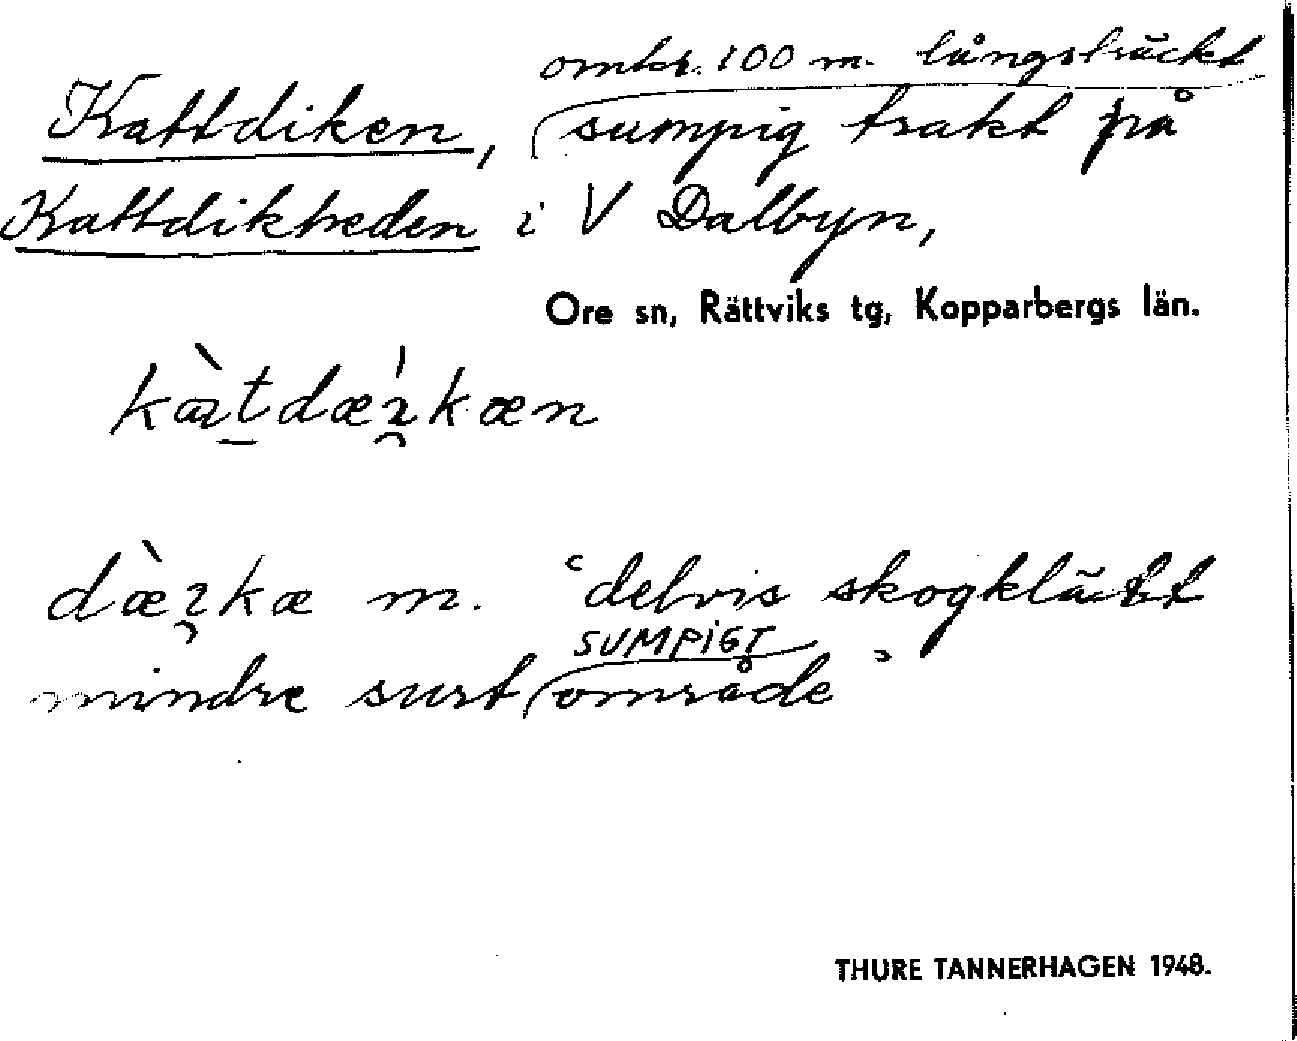 omkr. 100 m. långsträckt
Kattdiken, sumpig trakt på
Kattdikheden i V Dalbyn,
Ore sn, Rättviks tg, Kopparbergs län.
dælkæ m. "delvis skogklätt
SUMPIGT
mindre surt område"
THURE TANNERHAGEN 1948.